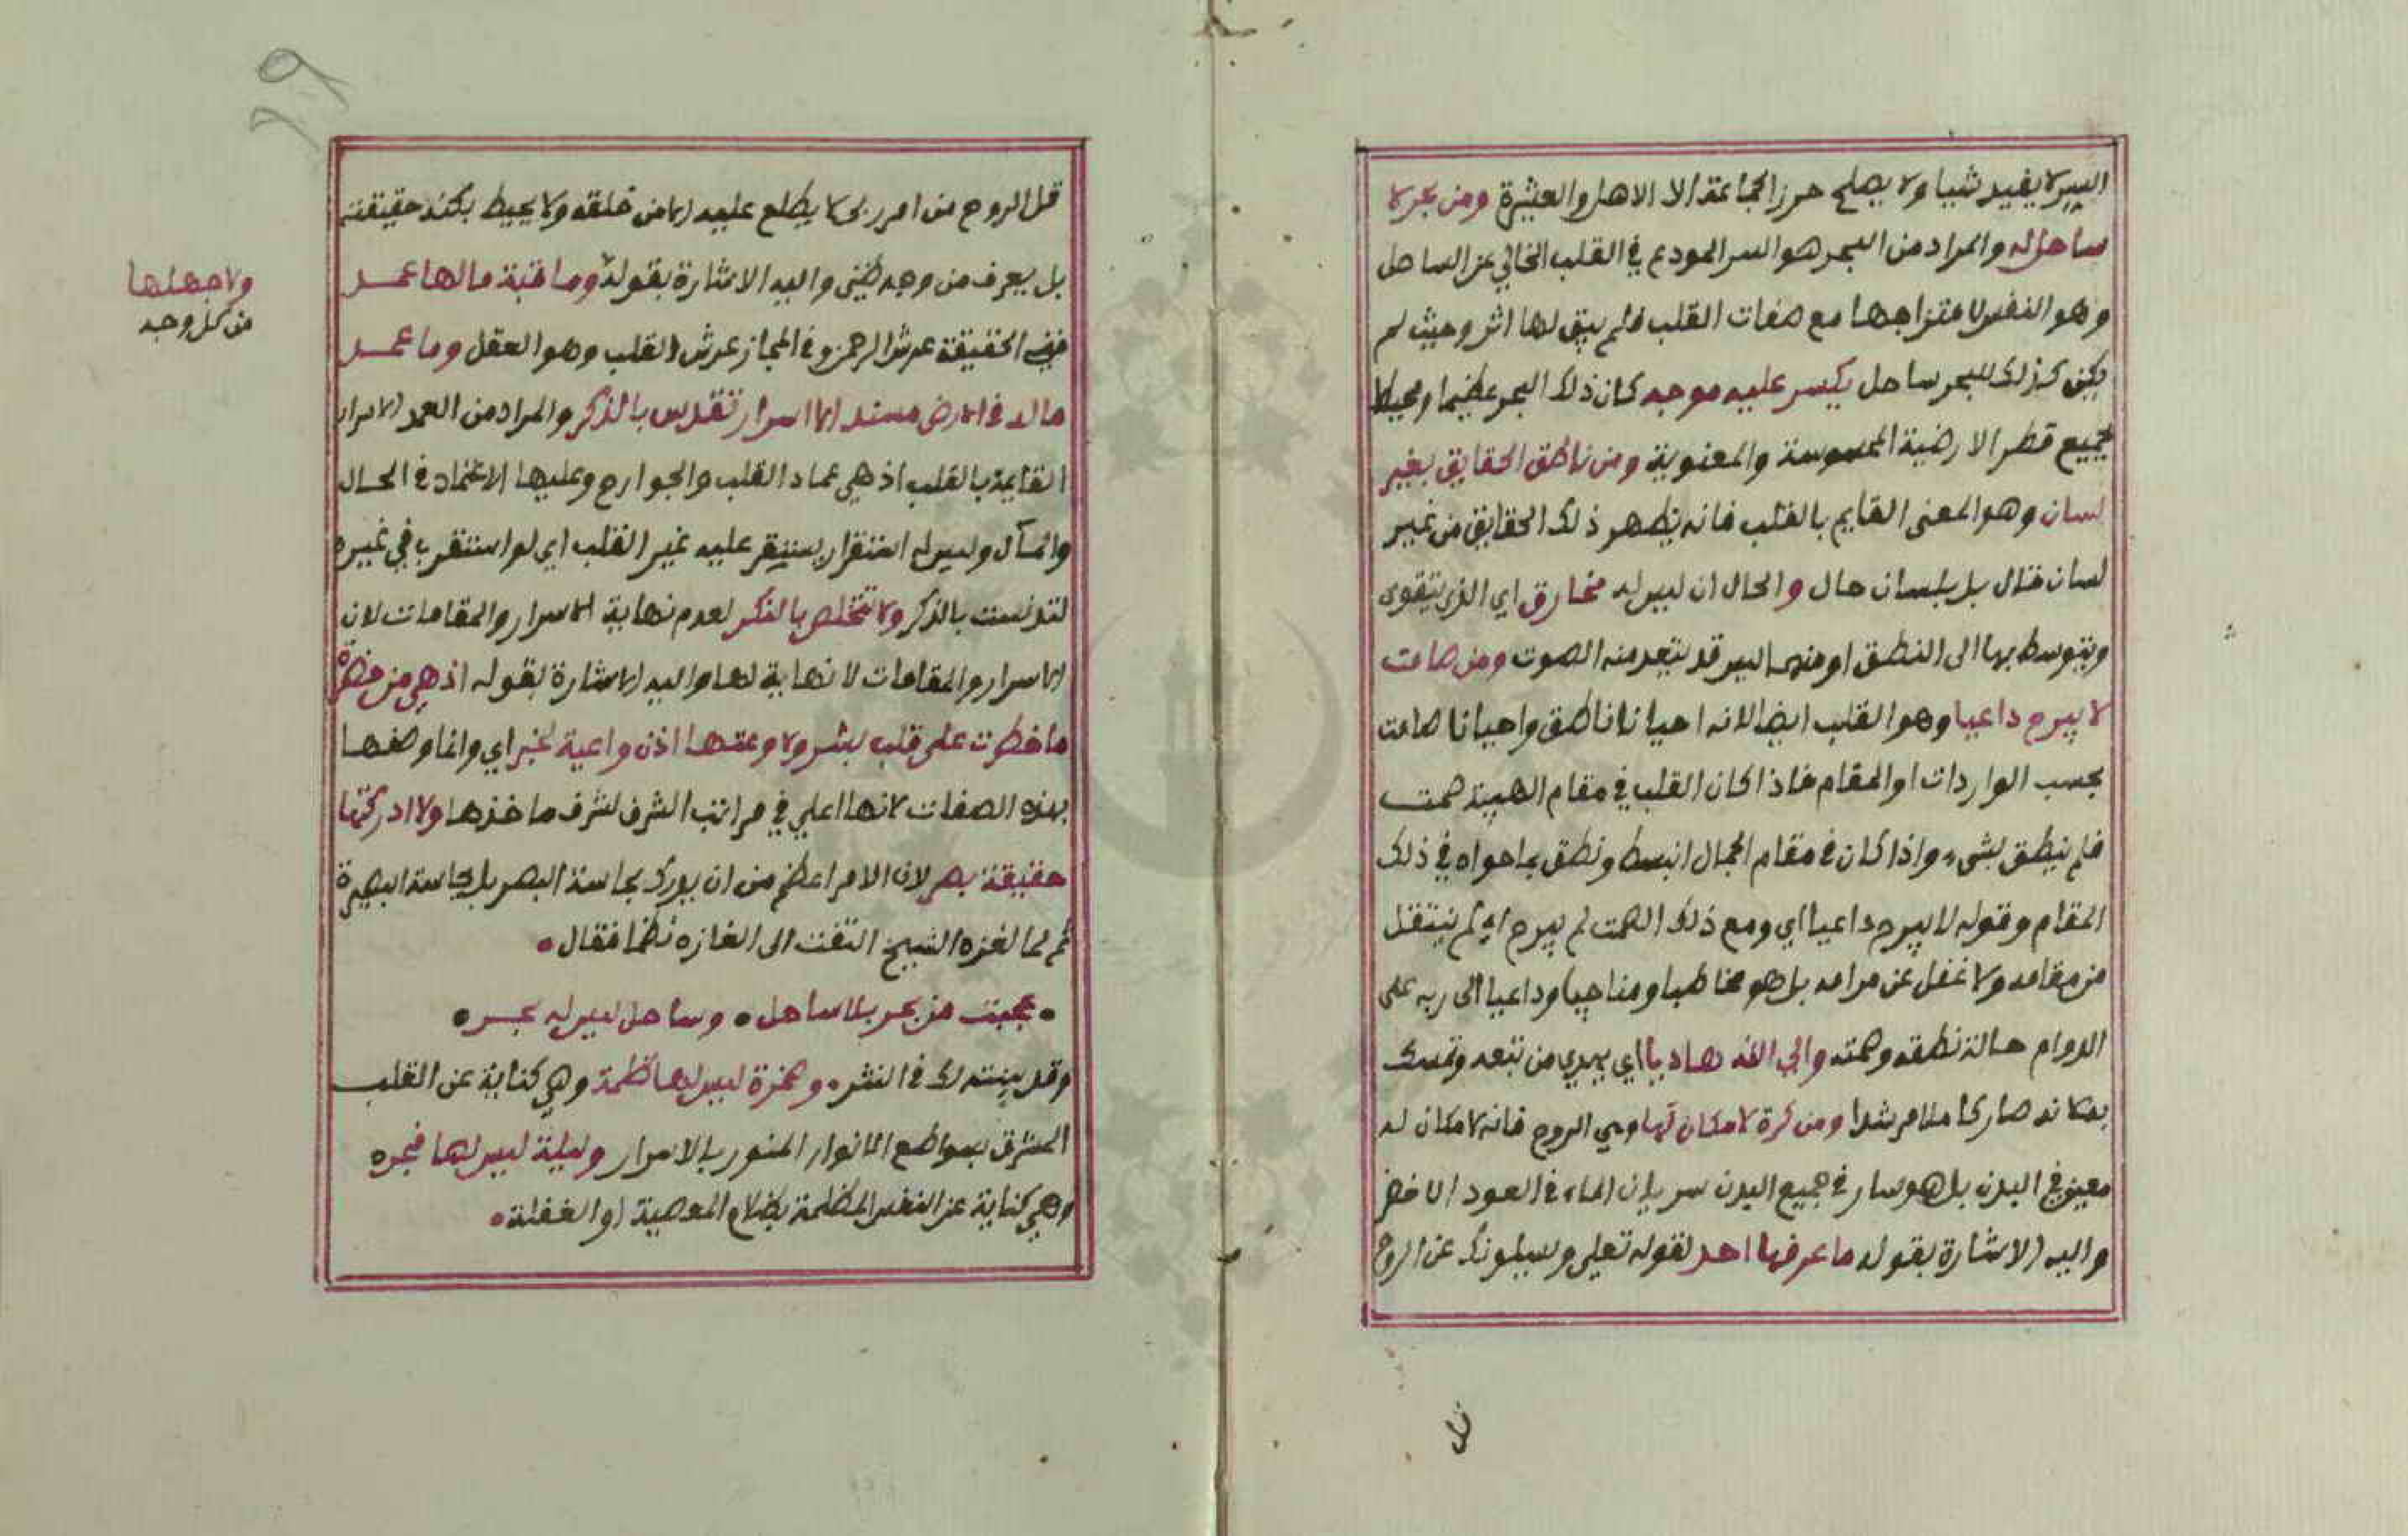 البير لا يفيد شيا ولا يصلح حرز الجماعة الا الاهل والعشيرة ومن بحر لا
ساحل له والمراد من البحر هو السر المودع في القلب الخالي عن الساحل
وهو النفس لامتزاجها مع صفات القلب فلم يبق لها اثر وحيث لم
يكن كذلك للبحر ساحل يكسر عليه موجه كان ذلك البحر عظيما ومحيطا
بجميع قطر الارضية المحسوسة والمعنوية ومن ناطق الحقايق بغير
لسان وهو المعنى القايم بالقلب فانه يظهر ذلك الحقايق من غير
لسان قال بل بلسان حال والحال ان ليس له مخارق اي الذي يتقوى
ويتوسط بها الى النطق او منهما ليس قد يتعد منه الصوت ومن صامت
لا يبرح داعيا وهو القلب ايضا لانه احيانا ناطق واحيانا صامت
بحسب الواردات او المقام فاذا كان القلب في مقام الهيبة صمت
فلم ينطق بشيء واذا كان في مقام الجمال انبسط ونطق بما حواه في ذلك
المقام وقوله لا يبرح داعيا اي ومع ذلك الصمت لم يبرح اي لم ينتقل
من مقامه ولا غفل عن مرامه بل هو مخاطبا ومناجيا وداعيا الى ربه على
الدوام حالة نطقه وصمته والى الله هاديا اي يهدي من تبعه وتمسك
بمكانه صار كاملا مرشدا ومن كرة لا مكان لها وهي الروح فانه لا مكان له
معين في البدن بل هو سار في جميع البدن سريان الماء في العود الاخضر
واليه الاشارة بقوله ما عرفها احد لقوله تعلى ويسيلونك عن الروح
قل
قل الروح من امر ربي لا يطلع عليه الا من خلقه ولا يحيط بكنه حقيقته
بل يعرف من وجه ظني واليه الاشارة بقوله وما قبة مالها عمد
ولا جهلها
من كل وجه
فهي الحقيقة عرش الرحمن وفي المجاز عرش القلب وهو العقل وما عمد
ماله في الارض مسند الا اسرار تتقدس بالذكر والمراد من العمد الاسرار
القايمة بالقلب اذ هي عماد القلب والجوارح وعليها الاعتماد في الحال
والمآل وليس له استقرار يستقر عليه غير القلب اي لو استقرب في غيره
لتدنست بالذكر ولا تتخلص بالذكر لعدم نهاية الاسرار والمقامات لان
الاسرار والمقامات لا نهاية لها واليه الاشارة بقوله اذ هي من حضرة
ما خطرت على قلب بشر ولا وعتها اذن واعية لخبر اي وانما وصفها
بهذه الصفات لانها اعلي في مراتب الشرف لشرف ماخذها ولا ادركتها
حقيقة بصر لان الامر اعظم من ان يدرك بحاسة البصر بل بحاسة البصيرة
ثم لما لغزه الشيخ التفت الى الغازه نظما فقال
عجبت من بحر بلا ساحل وساحل ليس له بحر
وقد بينته لك في النثر وصخرة ليس لها ظلمة وهي كناية عن القلب
المشرق بسواطع الانوار المنور بالاسرار وليلة ليس لها فجره
وهي كناية عن النفس المظلمة بظلام المعصية او الغفلة